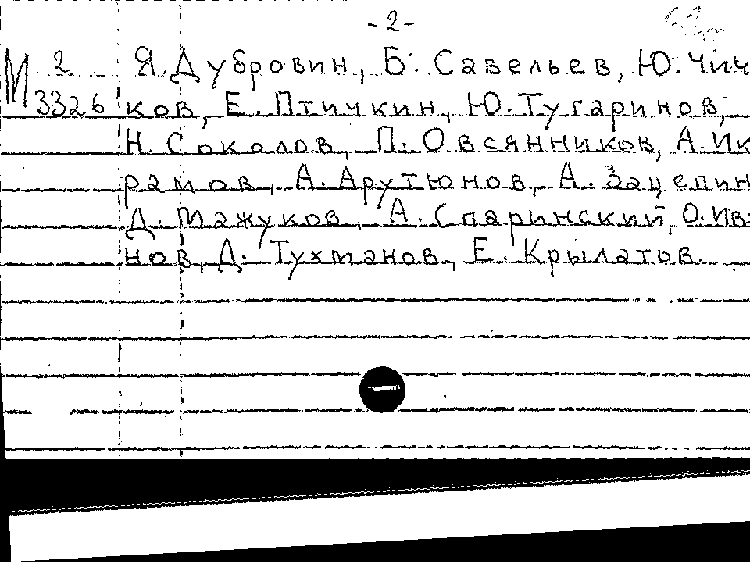 -2-
М 2 Я. Дубровин, Б. Савельев, Ю. Чич
3326 ков, Е. Птичкин, Ю. Тугаринов,
Н. Соколов, П. Овсянников, А. Ик
рамов, А. Арутюнов, А. Зацепин
Д. Мажуков, А. Спаринский, О. Ив
нов, Д. Тухманов, Е. Крылатов.